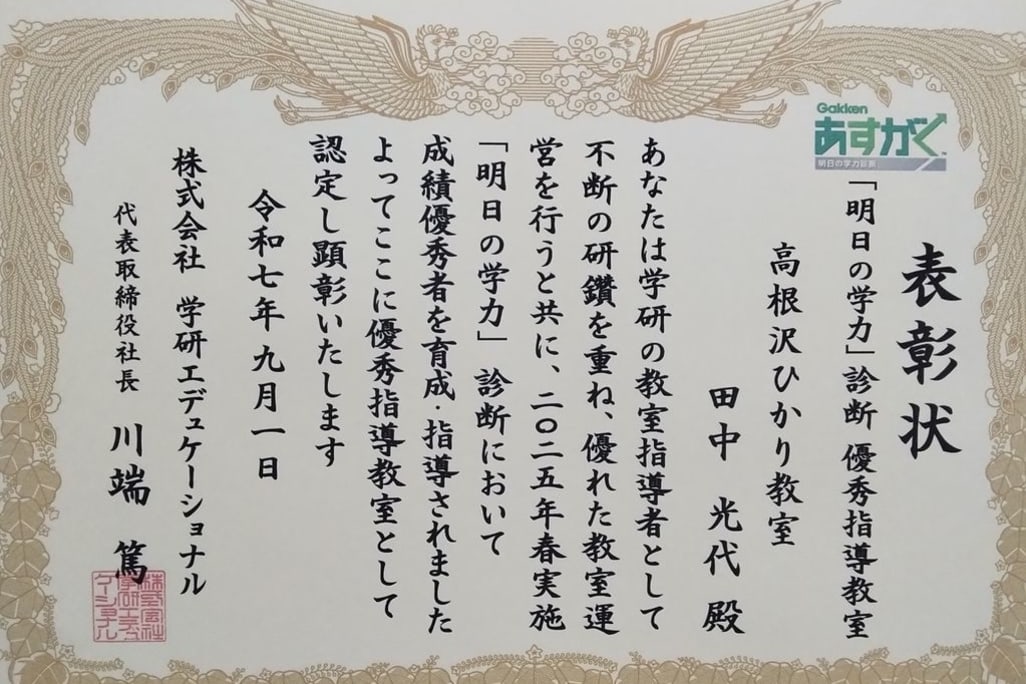 表彰状
Gakken
あすがく
明日の学力診断
「明日の学力」診断 優秀指導教室
高根沢ひかり教室
田中 光代 殿
あなたは学研の教室指導者として
不断の研鑽を重ね、優れた教室運
営を行うと共に、二〇二五年春実施
「明日の学力」診断において
成績優秀者を育成・指導されました
よってここに優秀指導教室として
認定し顕彰いたします
令和七年九月一日
株式会社 学研エデュケーショナル
代表取締役社長 川端 篤
株式会社
学研エデュ
ケーショナル